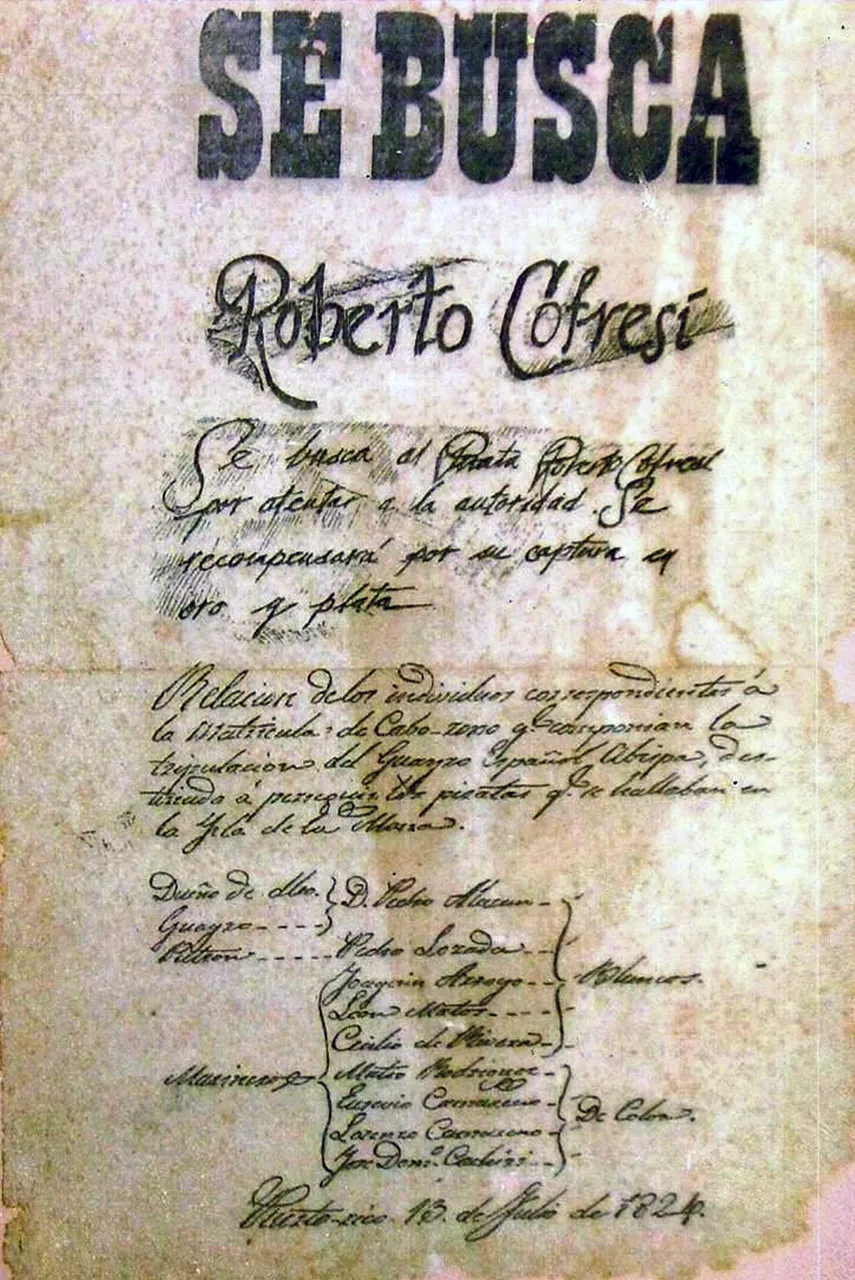 SE BUSCA
Roberto Cofresí
Se busca al Pirata Roberto Cofresí
por atentar a la autoridad. Se
recompensará por su captura en
oro y plata
Relacion de los individuos correspondientes á
la Matricula de Cabo-roxo qe componian la
tripulacion del Guayro Español Abispa, des-
tinado á perseguir los piratas q. se hallaban en
la Ysla de la Mona.
Dueño de dho. D. Pedro Alacan
Guayro
Patron Pedro Lozada
Joaquin Arroyo Blancos.
Leon Matos
Cecilio de Rivera
Marineros Mateo Rodriguez
Eusevio Carrasceno De Color.
Lorenzo Carrasceno
Jose Domo.
Puerto-rico 13 de Julio de 1824.